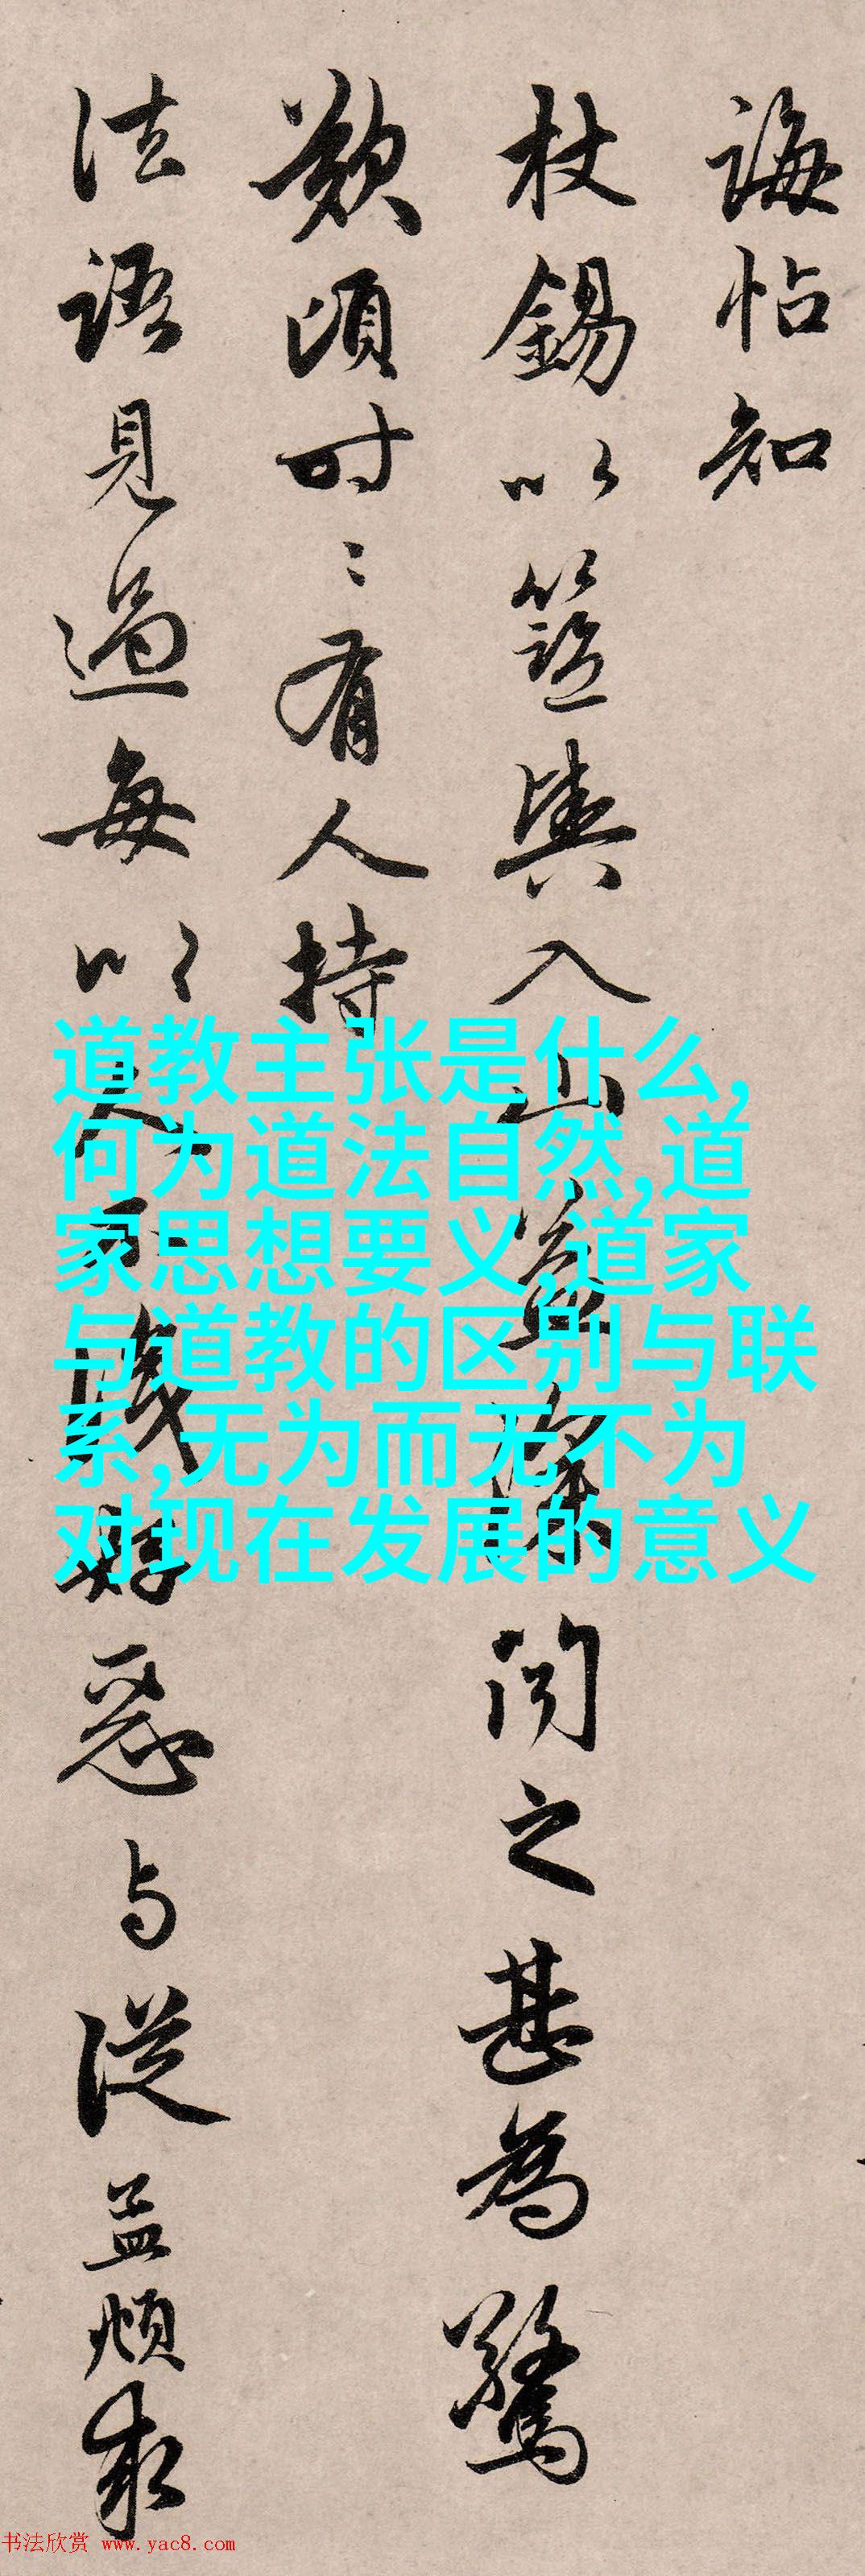 诲帖知
杖锡以篮舆入山
闻之甚为惊
叹顷时々有人持
法语见过每以
恶与从益烦
道教主张是什么,
何为道法自然,道
家思想要义,道家
与道教的区别与联
系,无为而无不为
对现在发展的意义
书法欣赏 www.yac8.com